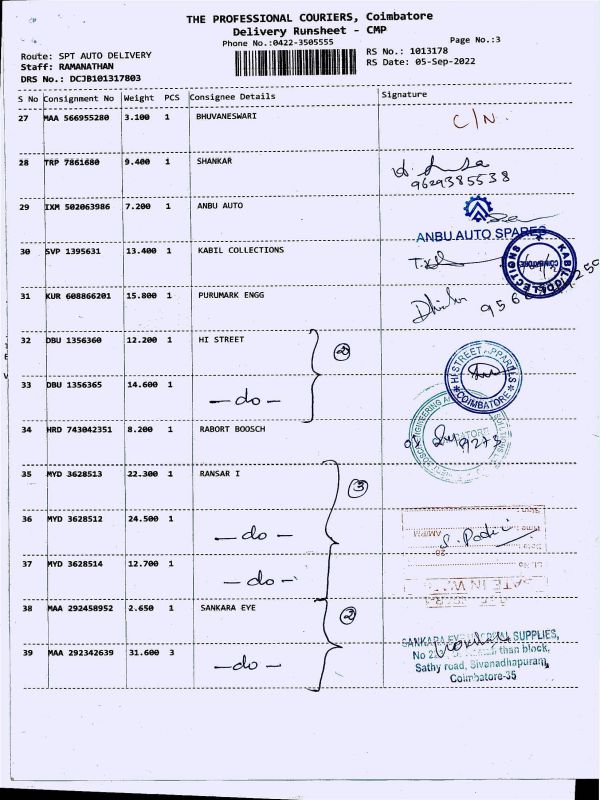 THE PROFESSIONAL COURIERS, Coimbatore
Delivery Runsheet - CMP
Phone No.:0422-3505555
Page No.:3
Route: SPT AUTO DELIVERY
RS No.: 1013178
Staff: RAMANATHAN
RS Date: 05-Sep-2022
DRS No.: DCJB101317803
S No Consignment No Weight PCS Consignee Details Signature
27 MAA 566955280 3.100 1 BHUVANESWARI C/N.
28 TRP 7861680 9.400 1 SHANKAR
9629385538
29 IXM 502063986 7.200 1 ANBU AUTO
ANBU AUTO SPARES
30 SVP 1395631 13.400 1 KABIL COLLECTIONS
KABIL COLLECTIONS
COIMBATORE
31 KUR 608866201 15.800 1 PURUMARK ENGG
32 DBU 1356360 12.200 1 HI STREET
2
HI STREET APPARELS
COIMBATORE
33 DBU 1356365 14.600 1
- do -
34 HRD 743042351 8.200 1 RABORT BOOSCH
35 MYD 3628513 22.300 1 RANSAR I
3
36 MYD 3628512 24.500 1
- do -
AM/PM
37 MYD 3628514 12.700 1
- do -
38 MAA 292458952 2.650 1 SANKARA EYE
2
SANKARA EYE SUPPLIES,
39 MAA 292342639 31.600 3
- do -
than block,
Sathy road, Sivanadhapuram,
Coimbatore-35